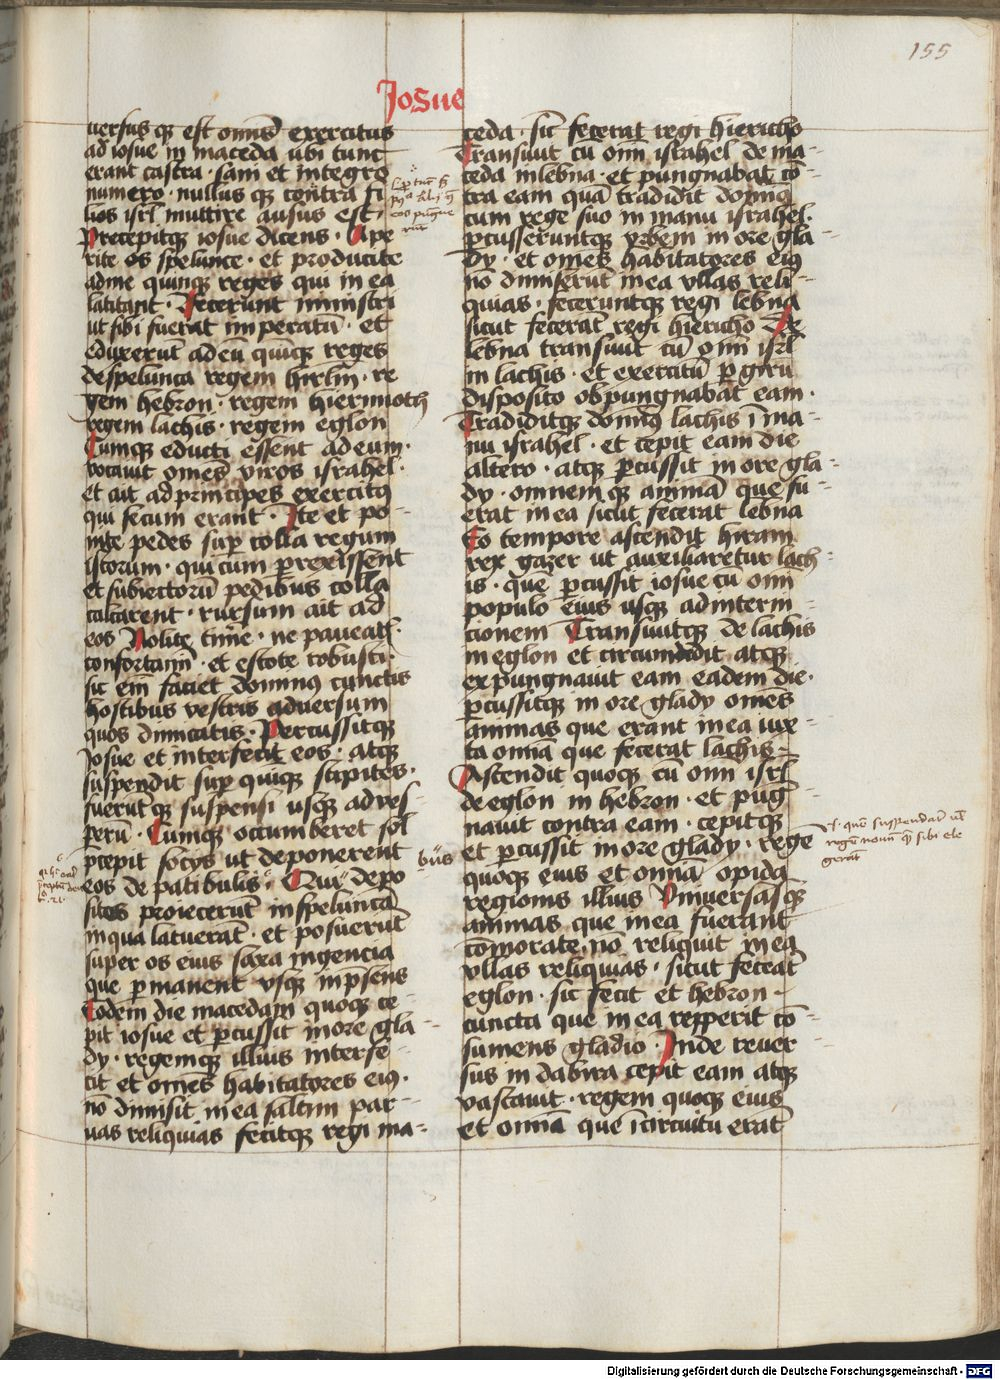 155
Josue
uersus que est omnis exercitus
ad iosue in maceda ubi tunc
erant castra · sani et integro
numero · nullus que contra fi
lios isrl muttire ausus est ·
Precepitque iosue dicens · Ape
rite os spelunce · et producite
ad me quinque reges qui in ea
latitant · Fecerunt ministri
ut sibi fuerat imperatū · et
eduxerūt ad eū quinque reges
de spelunca regem hirlm̄ · re
gem hebron · regem hiermioth
regem lachis · regem eglon
Cumque educti essent ad eum ·
vocauit omēs viros israhel ·
et ait ad principes exercitus
qui secum erant · Ite et po-
nite pedes sup colla regum
istorum · qui cum prexissent
et subiectorū pedibus colla
calcarent · rursum ait ad
eos Nolite time · ne paueatis ·
confortamī · et estote robusti ·
sic em̄ faciet dominus cunctis
hostibus vestris aduersum
quos dimicatis · Percussitque
Josue et interfecit eos · atque
suspendit sup quique stipites ·
fuerūtque suspensi usque ad ves-
perū · Cumque occumberet sol
p̄cepit socys ut deponerent
eos de patibulis · Qui depo
sitos proiecerūt in speluncā
in qua latuerāt · et posuerūt
super os eius saxa ingencia
que permanent vsque in p̄sens
Eodem die macedam quoque ce-
pit iosue et percussit in ore gla-
dy · regemque illius interfe-
cit et omēs habitatores eius ·
nō dimisit in ea saltim par-
uas reliquias fecitque regi ma-
bus
ceda · sic̄ fecerat regi hiericho
Transiuit cū omī israhel de ma-
ceda in lebna · et pungnabat cō-
tra eam quā tradidit dominus
cum rege suo in manu israhel ·
percusseruntque vrbem in ore gla-
dy · et omēs habitatores eius
nō dimiserūt in ea vllas reli-
quias · feceruntque regi lebna
sicut fecerāt regi hiericho De
lebna transiuit cū omī isrl
in lachis · et exercitū per girū
disposito obpungnabat eam ·
Tradiditque dominus lachis ī ma-
nu israhel · et cepit eam die
altero · atque percussit in ore gla-
dy · omnemque animā que fu-
erat in ea sicut fecerat lebna
Eo tempore ascendit hiram
rex gazer ut auxiliaretur lach-
is · quē percussit iosue cū omī
populo eius usque ad interni-
cionem Transiuitque de lachis
in eglon et circumdedit atque
expungnauit eam eadem die ·
percussitque in ore glady omēs
animas que erant in ea iux-
ta omīa que fecerat lachis –
Ascendit quoque cū omī isrl
de eglon in hebron · et pug-
nauit contra eam · cepitque
et percussit in ore glady · rege
quoque eius et omīa opida
regionis illius Vniuersasque
animas que in ea fuerant
cōmorate · nō reliquit in ea
vllas reliquias · sicut fecerat
eglon · sic fecit et hebron ·
cuncta que in ea repperit cō-
sumens gladio · Inde reuer
sus in dabira cepit eam atque
vastauit · regem quoque eius
et omīa que ī circuitu erāt
Digitalisierung gefördert durch die Deutsche Forschungsgemeinschaft - DFG